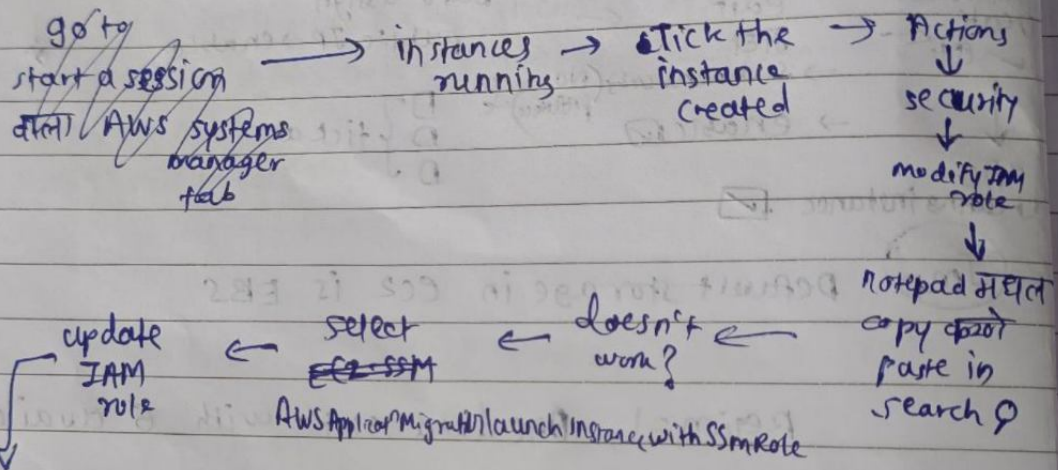 go to
start a session
वाला AWS systems
manager
tab
→ instances
running
→ Tick the
instance
created
→ Actions
↓
security
↓
modify IAM
role
↓
notepad मधल
copy करो
paste in
search
← doesn't
work?
← select
EC2-SSM
AWSApplicatⁿMigratⁿlaunchInstancewithSSmRole
← update
IAM
role